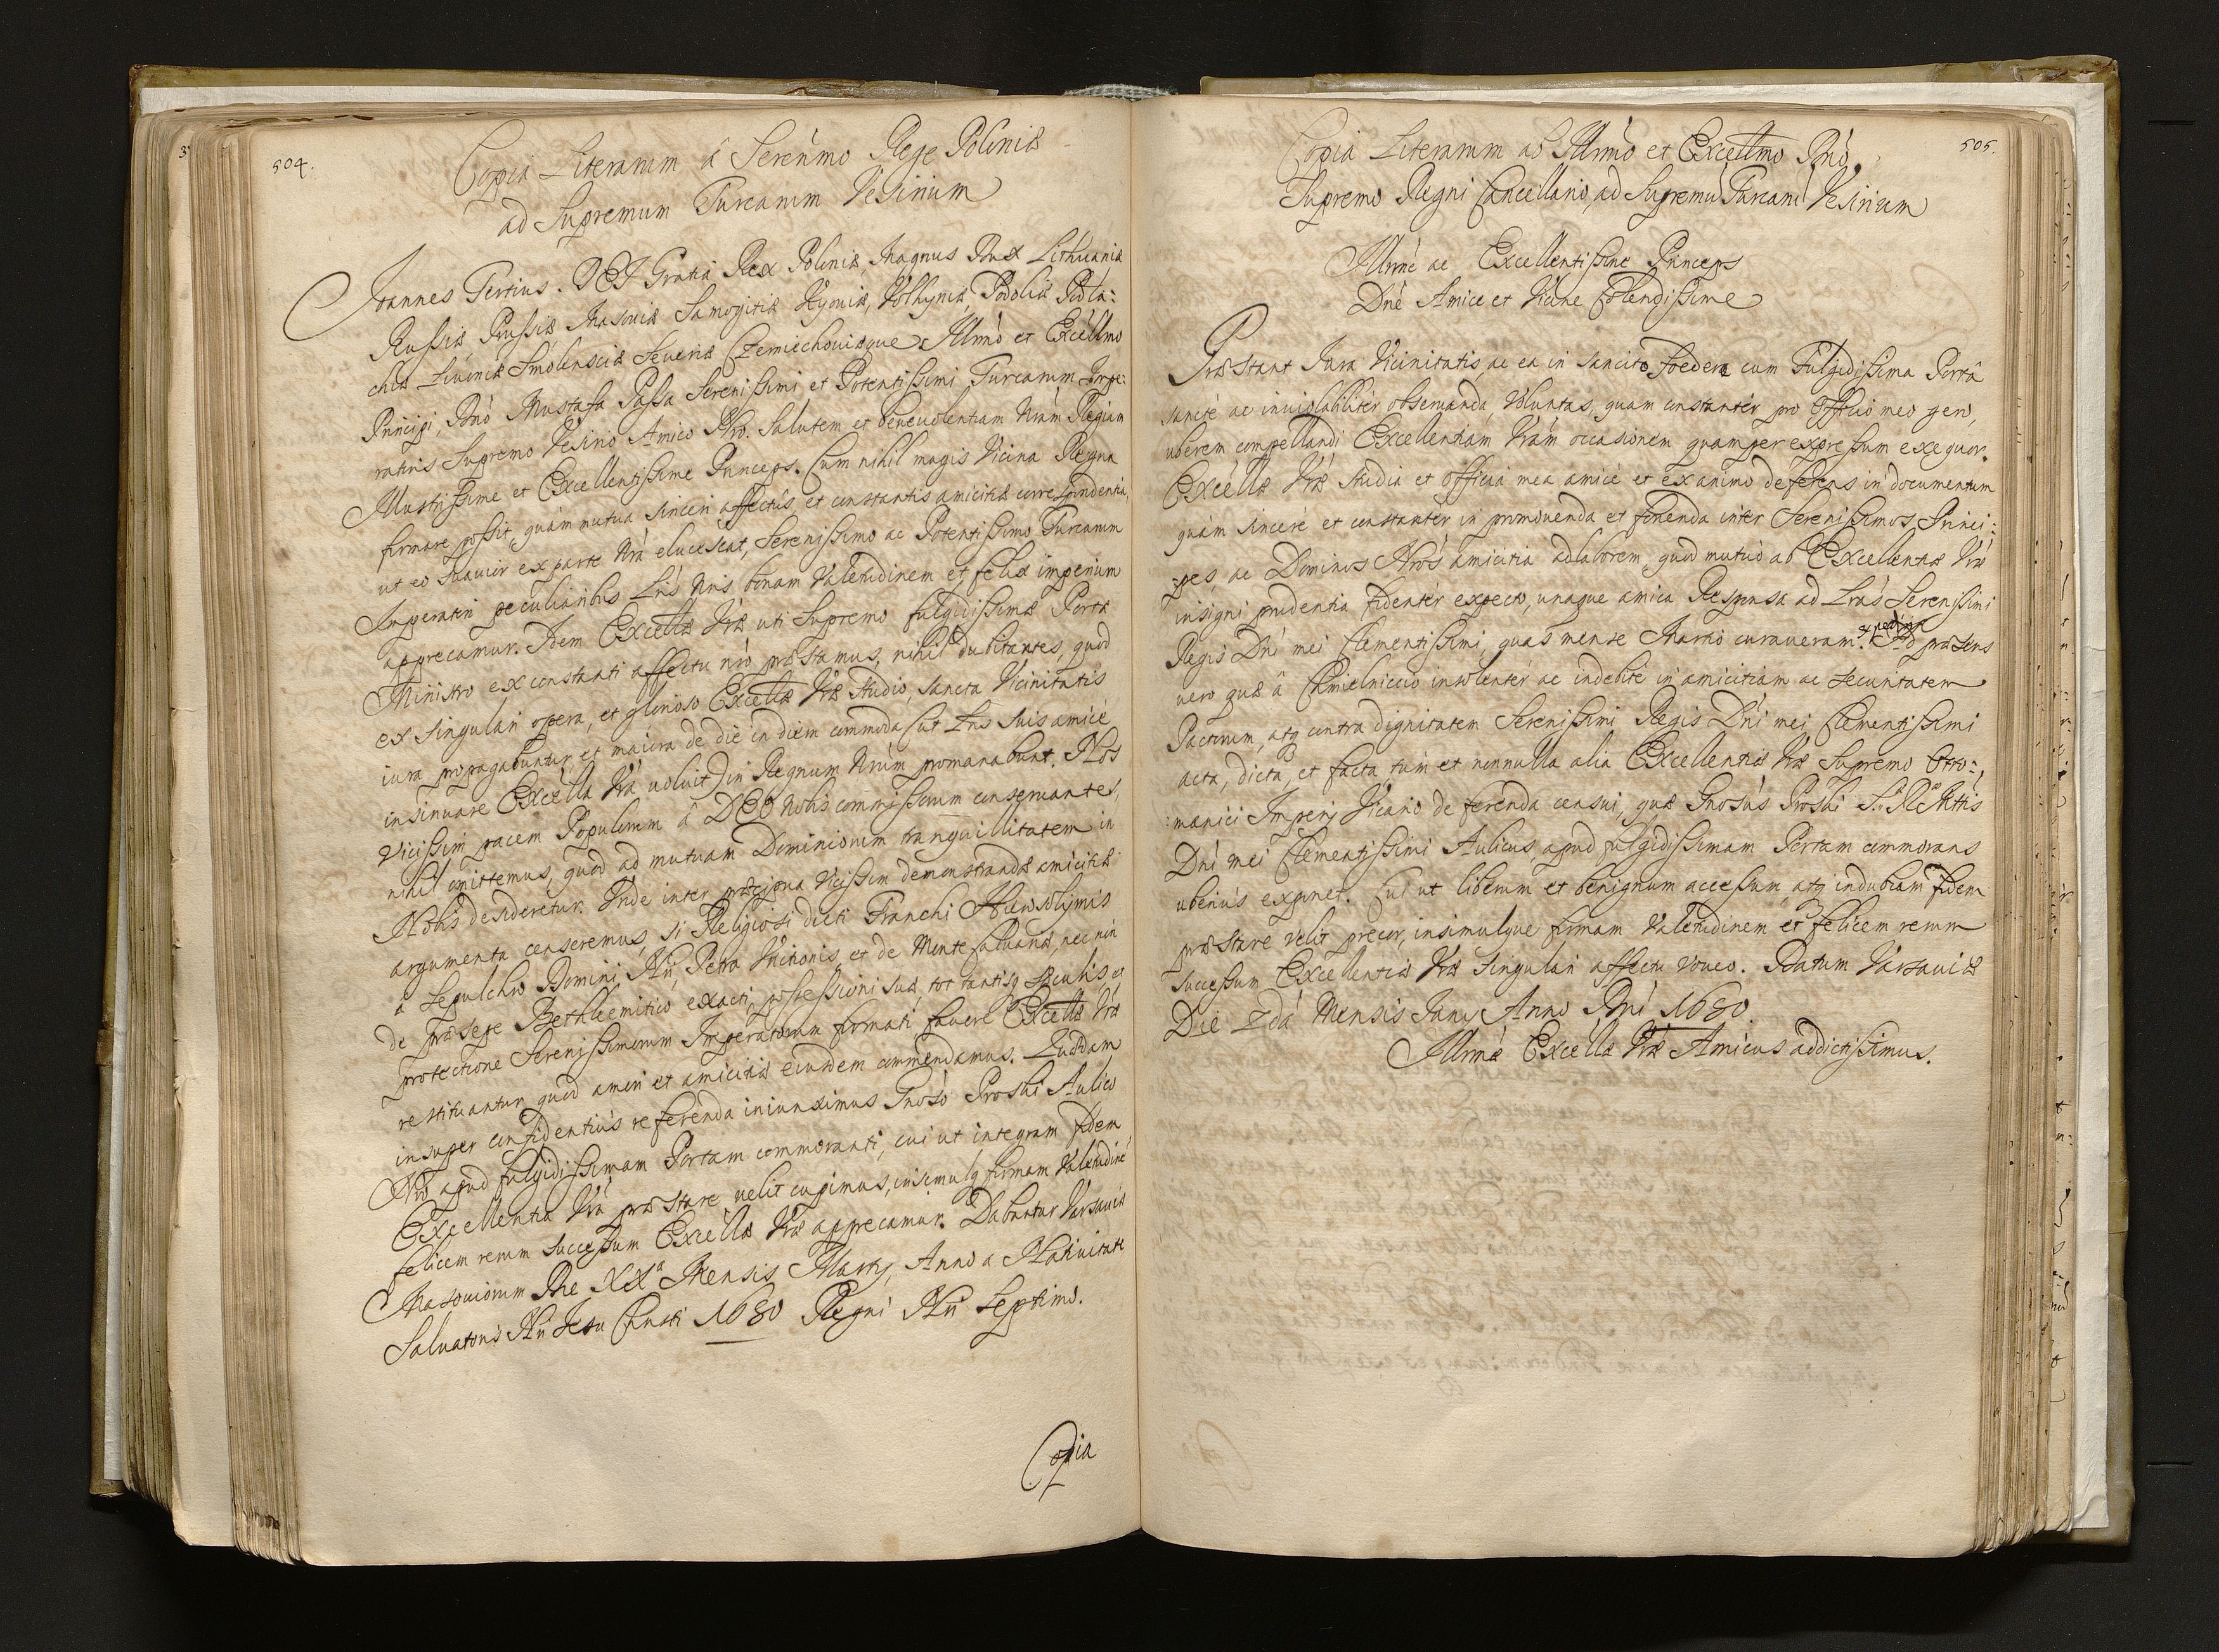 504.
Copia Literarum â Serenmo Rege Poloniæ
ad Supremum Turcarum Vesirium
Joannes Tertius. DEI Gratiâ Rex Poloniæ, Magnus Dux Lithuaniæ
Russiæ Prussiæ Masoviæ Samogitiæ Kyoviæ, Volhyniæ, Podoliæ Podla:
chiæ Livoniæ Smolensciæ Severiæ Czerniechoviæque. Illmo et Excellmo
Principi, Dno Mustafa Passa Serenissimi et Potentissimi Turcarum Impe:
ratoris Supremo Vesirio Amico Nro. Salutem et benevolentiam Nram Regiam
Illustrissime et Excellentissime Princeps. Cum nihil magis Vicina Regna
firmare possit, quàm mutua sinceri affectûs, et constantis amicitiæ correspondentia,
ut eo suavior ex parte Nrâ elucescat, Serenissimo ac Potentissimo Turcarum
Imperatori peculiaribus Lris Nris bonam Valetudinem et felix imperium
apprecamur. Idem Excellæ Vræ uti Supremo fulgidissimæ Portæ
Ministro ex constanti affectu nro præstamus, nihil dubitantes, quod
ex singulari opera, et glorioso Excellæ Vræ Studio, sancta Vicinitatis
iura propagabuntur, et maiora de die in diem commoda (ut Lris suis amicè
insinuare Excella Vra voluit) in Regnum Nrum promanabunt. Nos
Vicissim pacem Populorum â DEO Nobis commissorum conservantes,
nihil omittemus, quod ad mutuam Dominiorum tranquillitatem in
Nobis desideretur. Inde inter præcipua Vicissim demonstrandæ amicitiæ
argumenta censeremus, si Religiosi dicti Franchi Hierosolymis
â Sepulchro Domini Nri, Petra Unctionis, et de Monte Calvariæ, nec non
de præsepe Bethleemitico exacti, possessioni suæ, tot tantisq sæculis, et
protectione Serenissimorum Imperatorum firmati favore Excellæ Vræ
restituantur, quod amori et amicitiæ eiusdem commendamus. Quædam
insuper confidentiùs referenda iniunximus Gnoso Proski Aulico
Nro apud fulgidissimam Portam commoranti, cui ut integram fidem
Excellentia Vra præstare velit cupimus, insimulq firmam Valetudine
felicem rerum successum Excellæ Vræ apprecamur. Dabantur Varsaviæ
Masoviorum Die XXa Mensis Martij, Anno a Nativitate
Salvatoris Nri Jesu Christi 1680 Regni Nri Septimo.
Copia
505.
Copia Literarum ab Illmo et Excellmo Dno
Supremo Regni Cancellario, ad Supremu Turcaru Vesirium
Illme ac Excellentissime Princeps
Dne Amice et Vicine Colendissime
Præstant Jura Vicinitatis, ac ea in sancito foedere cum Fulgidissima Portâ
sanctè ac inviolabilitèr observanda, Voluntas, quam constantèr pro Officio meo gero,
uberem compellandi Excellentiam Vram occasionem quam per expressum exequor.
Excellæ Vræ studia et officia mea amicè et ex animo deferens in documentum
quàm sincerè et constantèr in promovenda et fovenda inter Serenissimos Princi:
:pes, ac Dominos Nros amicitia adlaborem, quod mutuò ab Excellentiæ Vræ
insigni prudentia fidentèr expecto, unaque amica Responsa ad Lras Serenissimi
Regis Dni mei Clementissimi, quas mense Martio curaveram expediri. Ad præsens
vero quæ â Chmielniccio insolentèr ac indebitè in amicitiam ac securitatem
Pactorum, atq contra dignitatem Serenissimi Regis Dni mei Clementissimi
acta, dicta, et facta, tùm et nonnulla alia Excellentiæ Vræ Supremo Otto:
:manici Imperij Vicario deferenda censui, quæ Gnosus Proski S. R. Mttis
Dni mei Clementissimi Aulicus, apud fulgidissimam Portam commorans
uberiùs exponet. Cui ut liberum et benignum accessum, atq indubiam fidem
præstare velit precor, insimulque firmam Valetudinem et felicem rerum
successum Excellentiæ Vræ singulari affectu voveo. Datum Varsaviæ
Die 2da Mensis Junij Anno Dni 1680.
Illmæ Excellæ Vræ Amicus addictissimus.